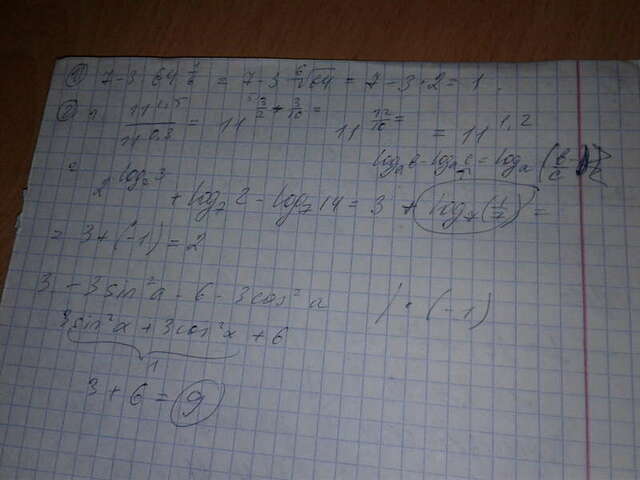 ① 7-3·64^(1/6) = 7-3 ⁶√64 = 7-3·2= 1.
② 11^1,5 / 11^0,3 = 11^(3/2 - 3/10) = 11^(12/10) = = 11^1,2
log_a b - log_a c = log_a (b/c)
2^(log_2 3) + log_7 2 - log_7 14 = 3 + log_7 (1/7) =
= 3 + (-1) = 2
3 - 3sin²a - 6 - 3cos²a / · (-1)
3sin²x + 3cos²x + 6
1
3 + 6 = 9